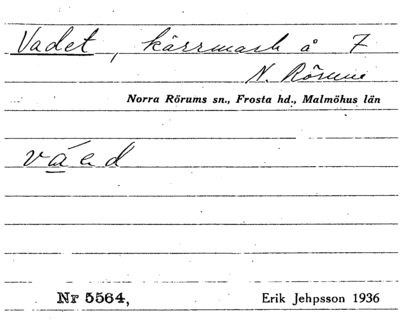 Vadet, kärrmark å 7
N. Rörum
Norra Rörums sn., Frosta hd., Malmöhus län
váed
Nr 5564,
Erik Jehpsson 1936